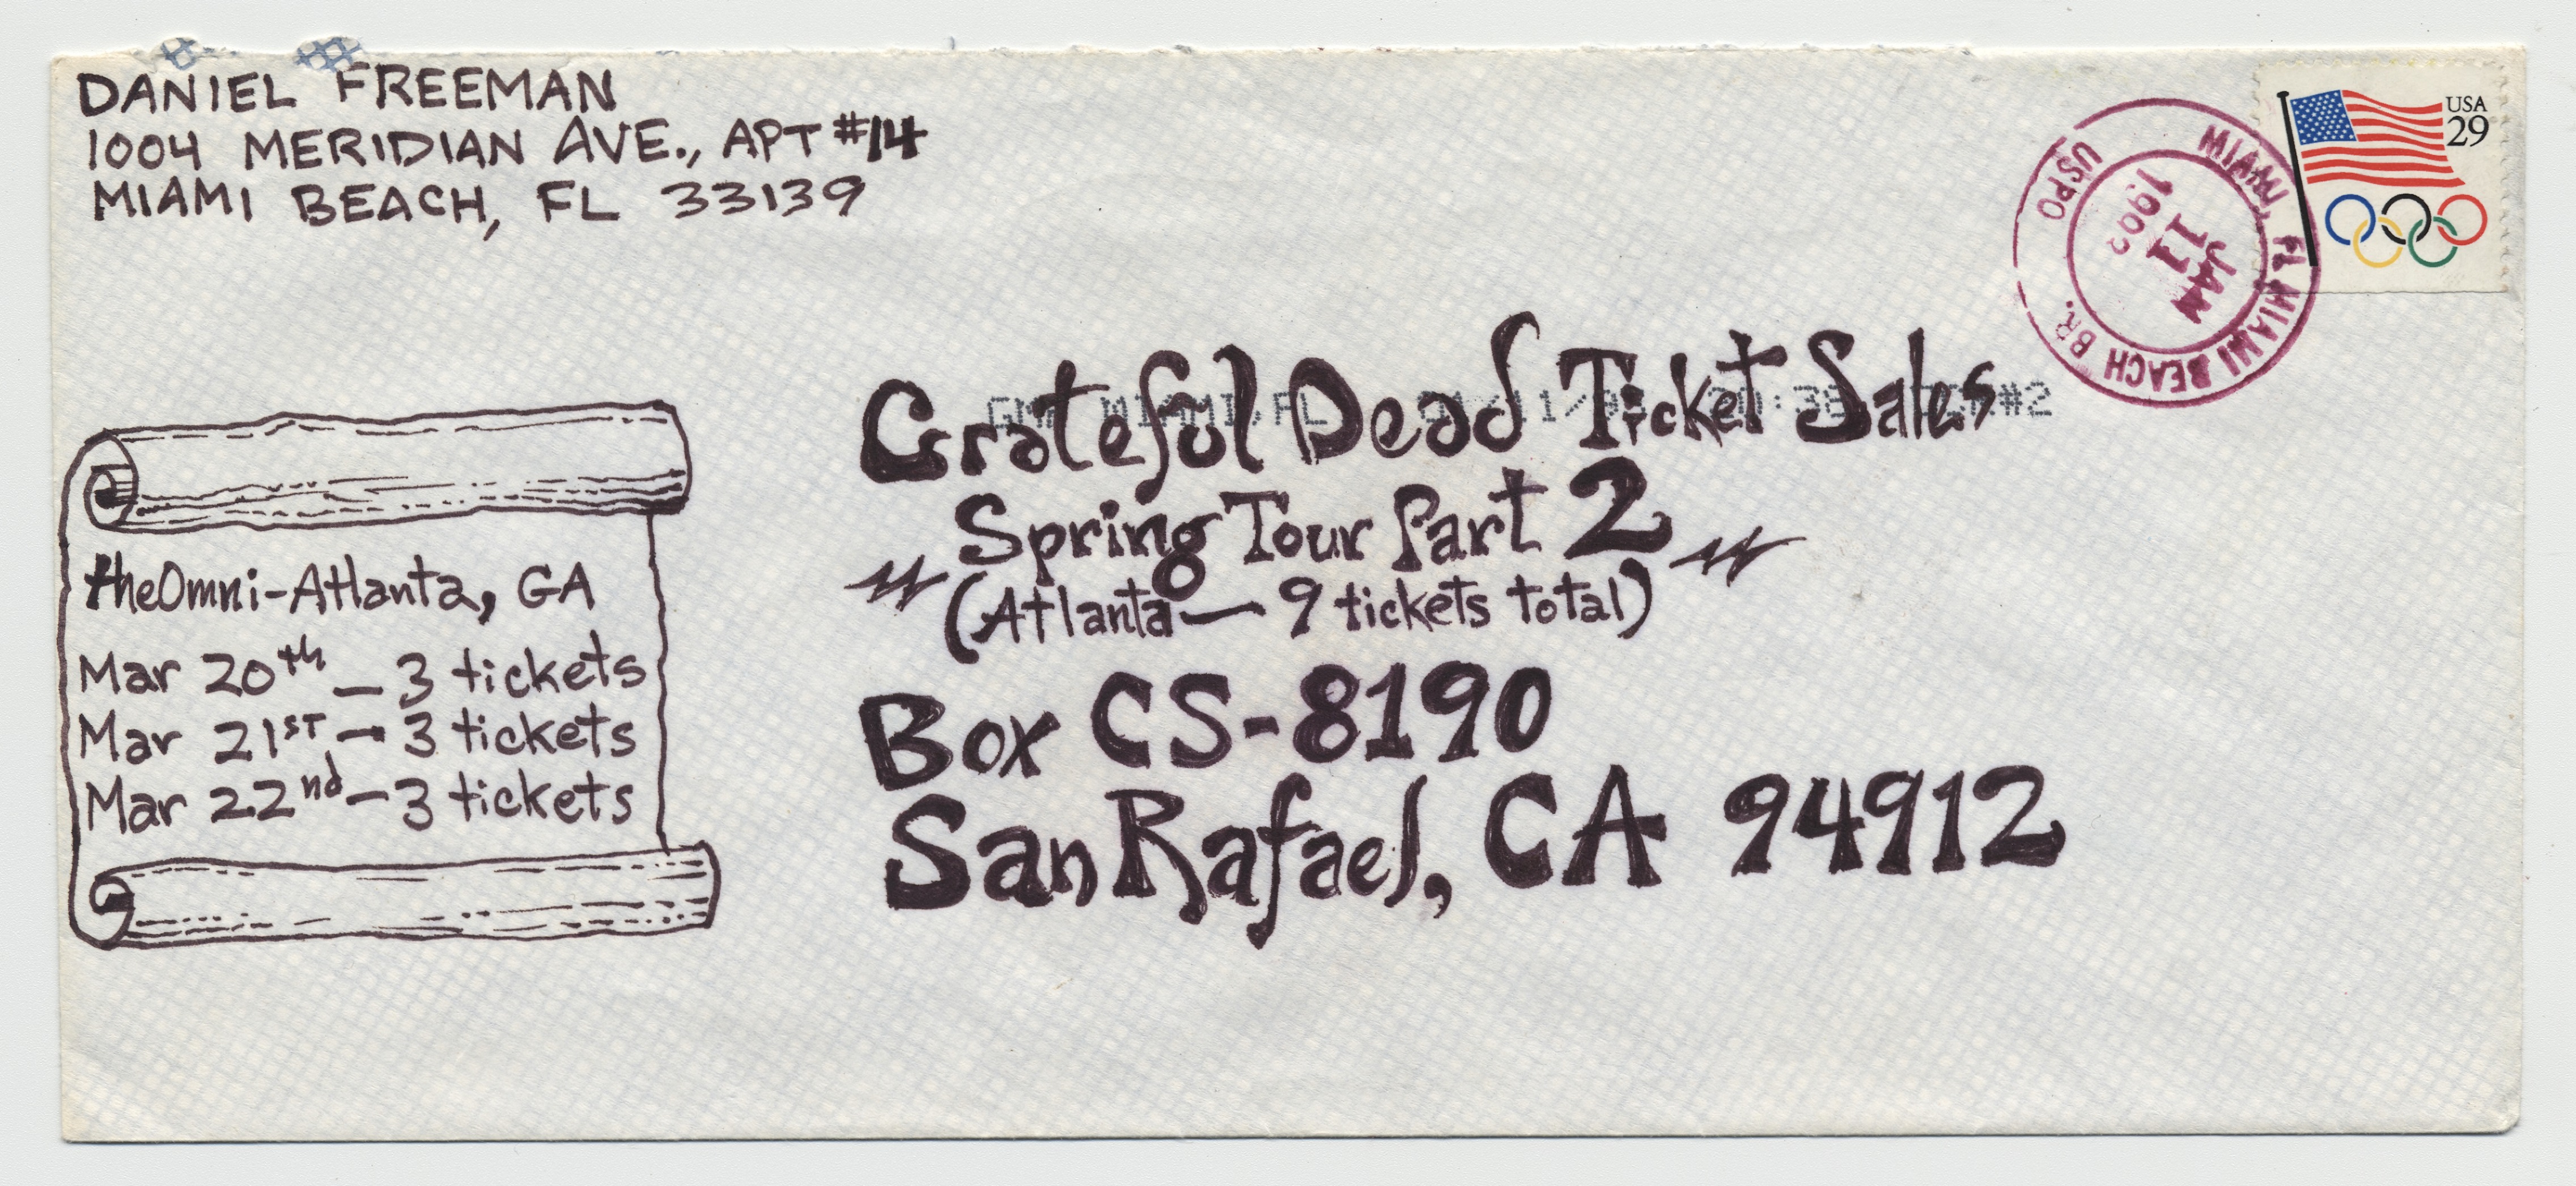 DANIEL FREEMAN
1004 MERIDIAN AVE., APT #14
MIAMI BEACH, FL 33139
USA
29
MIAMI, FL MIAMI BEACH BR.
USPO
JAN
11
1992
GMF MIAMI, FL
#2
Grateful Dead Ticket Sales
Spring Tour Part 2
(Atlanta — 9 tickets total)
Box CS-8190
San Rafael, CA 94912
the Omni - Atlanta, GA
Mar 20th — 3 tickets
Mar 21st — 3 tickets
Mar 22nd — 3 tickets